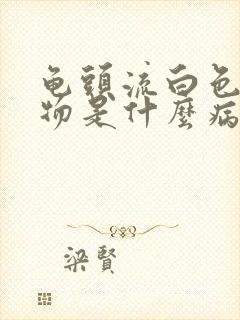 龟頭流白色
物是什麼病
梁賢